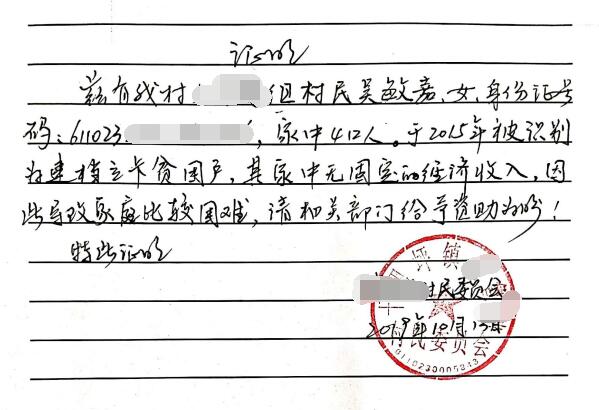 证明
兹有我村 组村民吴敏嘉,女,身份证号
码:611023 ,家中4口人。于2015年被识别
为建档立卡贫困户,其家中无固定的经济收入,因
此导致家庭比较困难,请相关部门给予资助为盼!
特此证明
坪镇
村民委员会
2019年10月15日
村民委员会
6110230005843